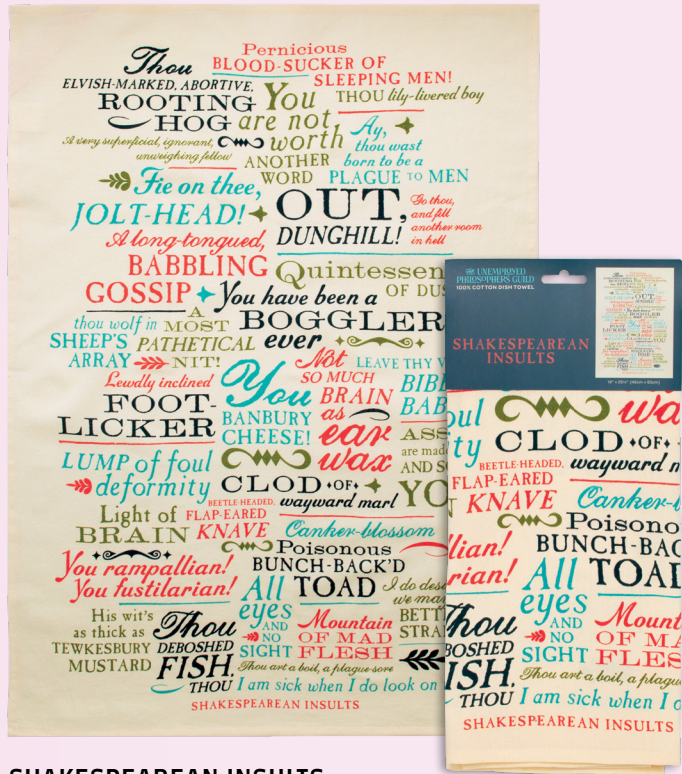 Pernicious
BLOOD-SUCKER OF
SLEEPING MEN!
Thou
ELVISH-MARKED, ABORTIVE,
ROOTING
HOG
You
are not
worth
ANOTHER
WORD
THOU lily-livered boy
A very superficial, ignorant,
unweighing fellow
Ay,
thou wast
born to be a
PLAGUE TO MEN
Fie on thee,
JOLT-HEAD!
OUT,
DUNGHILL!
Go thou,
and fill
another room
in hell
A long-tongued,
BABBLING
GOSSIP
Quintessen
OF DUS
You have been a
BOGGLER
ever
thou wolf in
SHEEP'S
ARRAY
A
MOST
PATHETICAL
NIT!
Not
SO MUCH
BRAIN
as
ear
wax
LEAVE THY V
BIB
BAB
Lewdly inclined
FOOT-
LICKER
You
BANBURY
CHEESE!
ASS
are made
AND SO
YO
LUMP of foul
deformity
CLOD OF
wayward marl
BEETLE-HEADED,
FLAP-EARED
KNAVE
Light of
BRAIN
Canker-blossom
Poisonous
BUNCH-BACK'D
TOAD
You rampallian!
You fustilarian!
All
eyes
AND
NO
SIGHT
I do desi
we ma
BETT
STRA
His wit's
as thick as
TEWKESBURY
MUSTARD
Thou
DEBOSHED
FISH,
THOU
Mountain
OF MAD
FLESH
Thou art a boil, a plague-sore
I am sick when I do look on
SHAKESPEAREAN INSULTS
THE UNEMPLOYED
PHILOSOPHERS GUILD
100% COTTON DISH TOWEL
SHAKESPEAREAN
INSULTS
oul
ty
wa
CLOD OF
wayward m
BEETLE-HEADED,
FLAP-EARED
KNAVE
Canker-
Poisono
BUNCH-BAC
TOAD
lian!
rian!
All
eyes
AND
NO
SIGHT
Mount
OF MA
FLES
hou
DEBOSHED
ISH,
THOU
Thou art a boil, a plague
I am sick when I
SHAKESPEAREAN INSULTS
SHAKESPEAREAN INSULTS